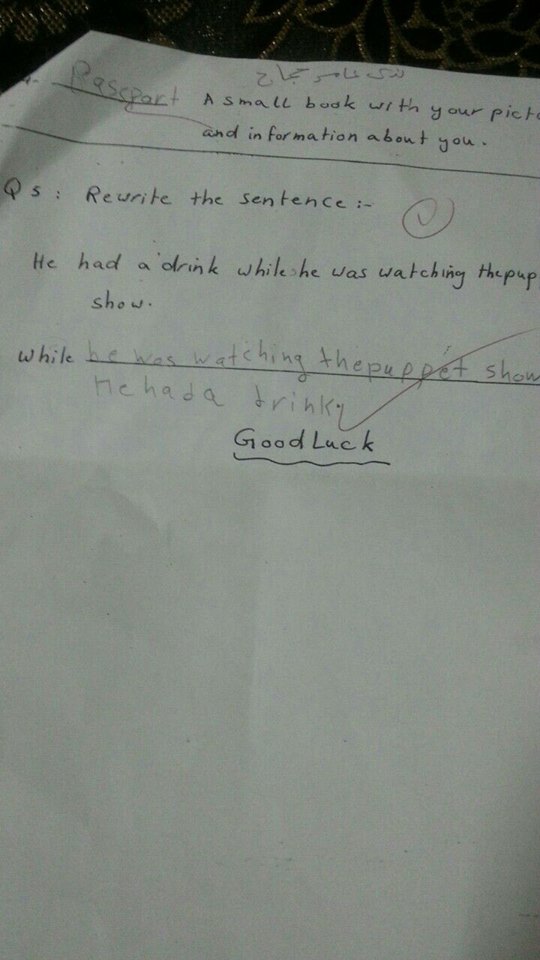 عامر حجاج
Passport A small book with your pict
and information about you.
Q 5 : Rewrite the sentence :-
He had a drink while he was watching the pup
show.
while he was watching the puppet show
He had a drink
Good Luck